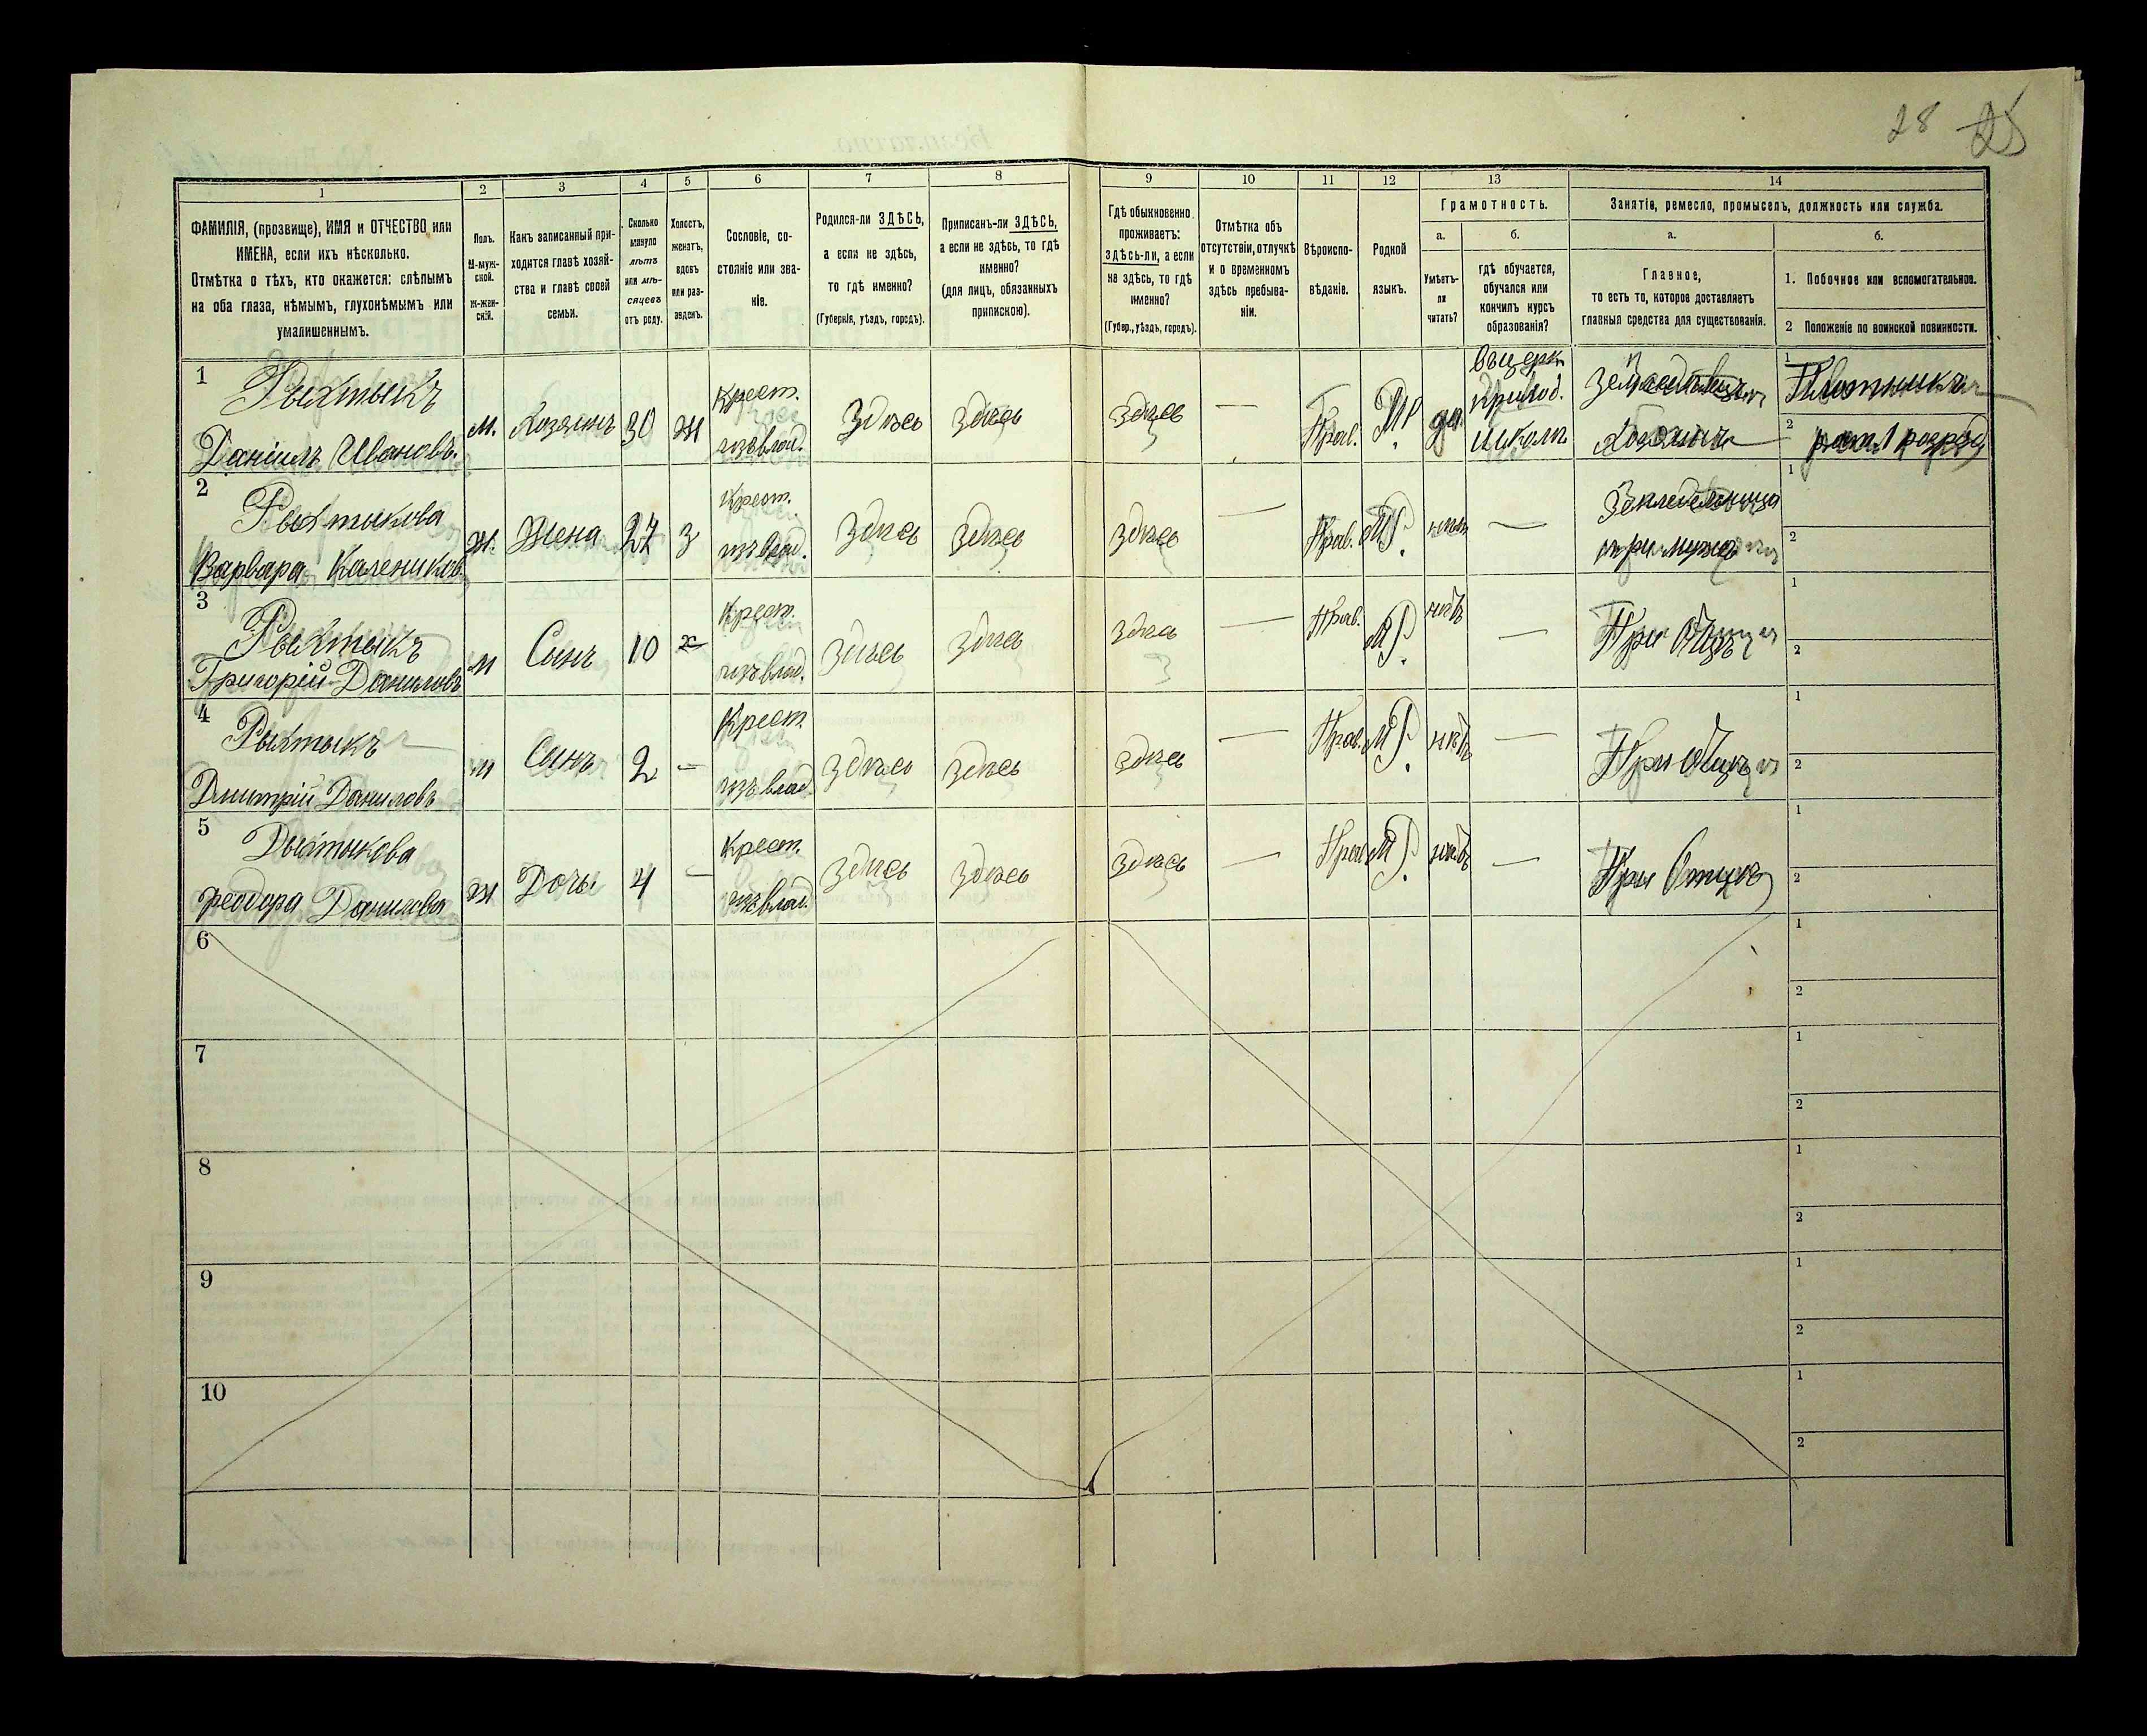 28 25
1 2 3 4 5 6 7 8 9 10 11 12 13 14
ФАМИЛІЯ, (прозвище), ИМЯ и ОТЧЕСТВО или
ИМЕНА, если ихъ нѣсколько.
Отмѣтка о тѣхъ, кто окажется: слѣпымъ
на оба глаза, нѣмымъ, глухонѣмымъ или
умалишеннымъ.
Полъ.
М-муж-
ской.
Ж-жен-
скій.
Какъ записанный при-
ходится главѣ хозяй-
ства и главѣ своей
семьи.
Сколько
минуло
лѣтъ
или мѣ-
сяцевъ
отъ роду.
Холостъ,
женатъ,
вдовъ
или раз-
веденъ.
Сословіе, со-
стояніе или зва-
ніе.
Родился-ли ЗДѢСЬ,
а если не здѣсь,
то гдѣ именно?
(Губернія, уѣздъ, городъ).
Приписанъ-ли ЗДѢСЬ,
а если не здѣсь, то гдѣ
именно?
(для лицъ, обязанныхъ
припискою).
Гдѣ обыкновенно
проживаетъ:
здѣсь-ли, а если
не здѣсь, то гдѣ
именно?
(Губер., уѣздъ, городъ).
Отмѣтка объ
отсутствіи, отлучкѣ
и о временномъ
здѣсь пребыва-
ніи.
Вѣроиспо-
вѣданіе.
Родной
языкъ.
Грамотность.
а.
Умѣетъ-
ли
читать?
б.
гдѣ обучается,
обучался или
кончилъ курсъ
образованія?
Занятіе, ремесло, промыселъ, должность или служба.
а.
Главное,
то есть то, которое доставляетъ
главныя средства для существованія.
б.
1. Побочное или вспомогательное.
2 Положеніе по воинской повинности.
1
Рыхтыкъ
Даніилъ Ивановъ.
м. Хозяинъ 30 ж
Крест.
изъ влад.
здѣсь здѣсь здѣсь — Прав. МР. да
въ церк.
приход.
школѣ
Земледѣлецъ
хозяинъ
1 Плотникъ
2 ратн. 1 разряд
2
Рыхтыкова
Варвара Калеников.
ж. Жена 27 З
Крест.
изъ влад.
здѣсь здѣсь здѣсь — Прав. МР. нѣтъ —
Земледелица
при мужѣ
1
2
3
Рыхтыкъ
Григорій Даниловъ
м Сынъ 10 х
Крест.
изъ влад.
здѣсь здѣсь здѣсь — Прав. МР. нѣтъ —
При Отцѣ
1
2
4
Рыхтыкъ
Дмитрій Даниловъ
м Сынъ 2 —
Крест.
изъ влад.
здѣсь здѣсь здѣсь — Прав. МР. нѣтъ —
При Отцѣ
1
2
5
Рыхтыкова
Феодора Данилова
ж Дочь 4 —
Крест.
изъ влад.
здѣсь здѣсь здѣсь — Прав МР. нѣтъ —
При Отцѣ
1
2
6
1
2
7
1
2
8
1
2
9
1
2
10
1
2